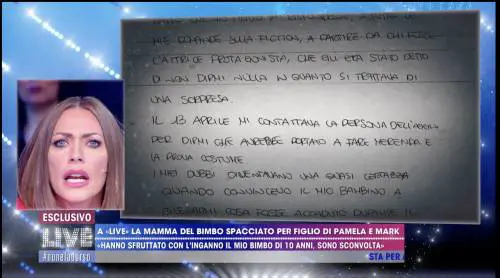 MIE DOMANDE SULLA FICTION, A PARTIRE DA CHI FOSSE
L'ATTRICE PROTAGONISTA, CHE GLI ERA STATO DETTO
DI NON DIRMI NULLA IN QUANTO SI TRATTAVA DI
UNA SORPRESA.
IL 13 APRILE MI CONTATTAVA LA PERSONA DELL'
PER DIRMI CHE AVREBBE PORTATO A FARE MERENDA E
LA PROVA COSTUME
I MIEI DUBBI DIVENTAVANO UNA QUASI CERTEZZA
QUANDO CONVINCEVO IL MIO BAMBINO A
COSA FOSSE ACCADUTO DURANTE IL
ESCLUSIVO
LIVE
#noneladurso
A «LIVE» LA MAMMA DEL BIMBO SPACCIATO PER FIGLIO DI PAMELA E MARK
«HANNO SFRUTTATO CON L'INGANNO IL MIO BIMBO DI 10 ANNI. SONO SCONVOLTA»
STA PER